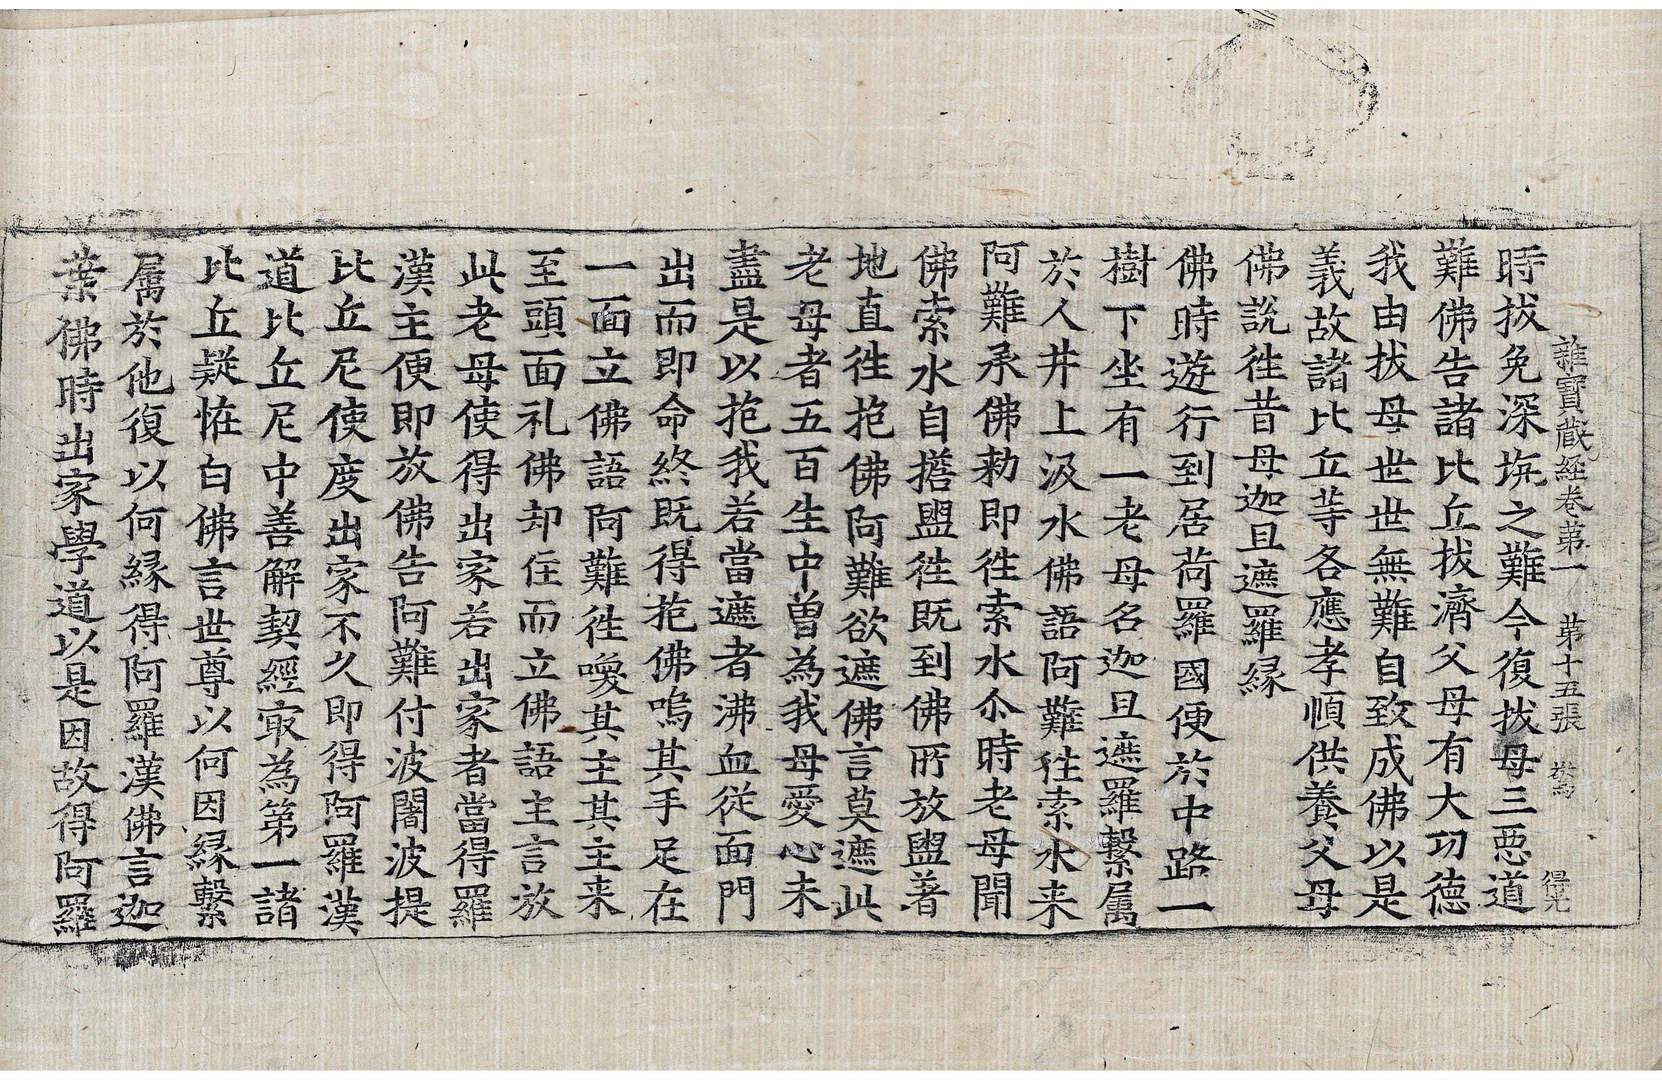 雜寶藏經卷第一　第十五張　驚
時拔免深坑之難今復拔母三惡道
難佛告諸比丘拔濟父母有大功德
我由拔母世世無難自致成佛以是
義故諸比丘等各應孝順供養父母
佛說徃昔母迦旦遮羅緣
佛時遊行到居荷羅國便於中路一
樹下坐有一老母名迦旦遮羅繫属
於人井上汲水佛語阿難徃索水来
阿難承佛勑即徃索水尒時老母聞
佛索水自擔盥徃既到佛所放盥著
地直徃抱佛阿難欲遮佛言莫遮此
老母者五百生中曾為我母愛心未
盡是以抱我若當遮者沸血從面門
出而即命終既得抱佛嗚其手足在
一面立佛語阿難徃喚其主其主来
至頭面礼佛却住而立佛語主言放
此老母使得出家若出家者當得羅
漢主便即放佛告阿難付波闍波提
比丘尼使度出家不久即得阿羅漢
道比丘尼中善解契經寂為第一諸
比丘疑恠白佛言世尊以何因緣繫
属於他復以何緣得阿羅漢佛言迦
葉佛時出家學道以是因故得阿羅